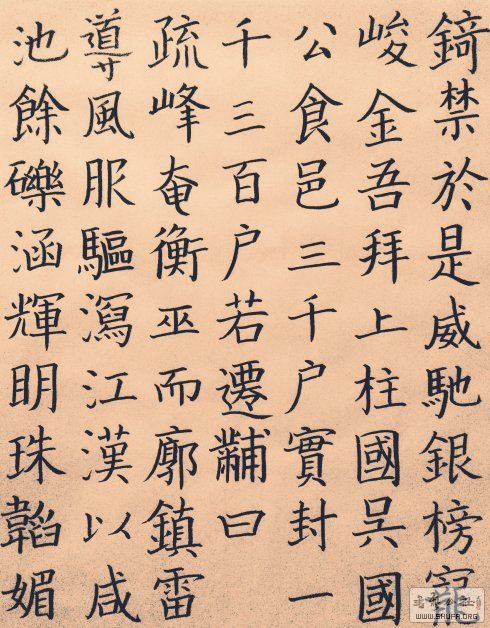 錡禁於是威馳銀榜寵
峻金吾拜上柱國吳國
公食邑三千户實封一
千三百户若遷黼曰
疏峰奄衡巫而廓鎮雷
導風服驅瀉江漢以咸
池餘礫涵輝眀珠韜媚
WWW.SHUFA.ORG